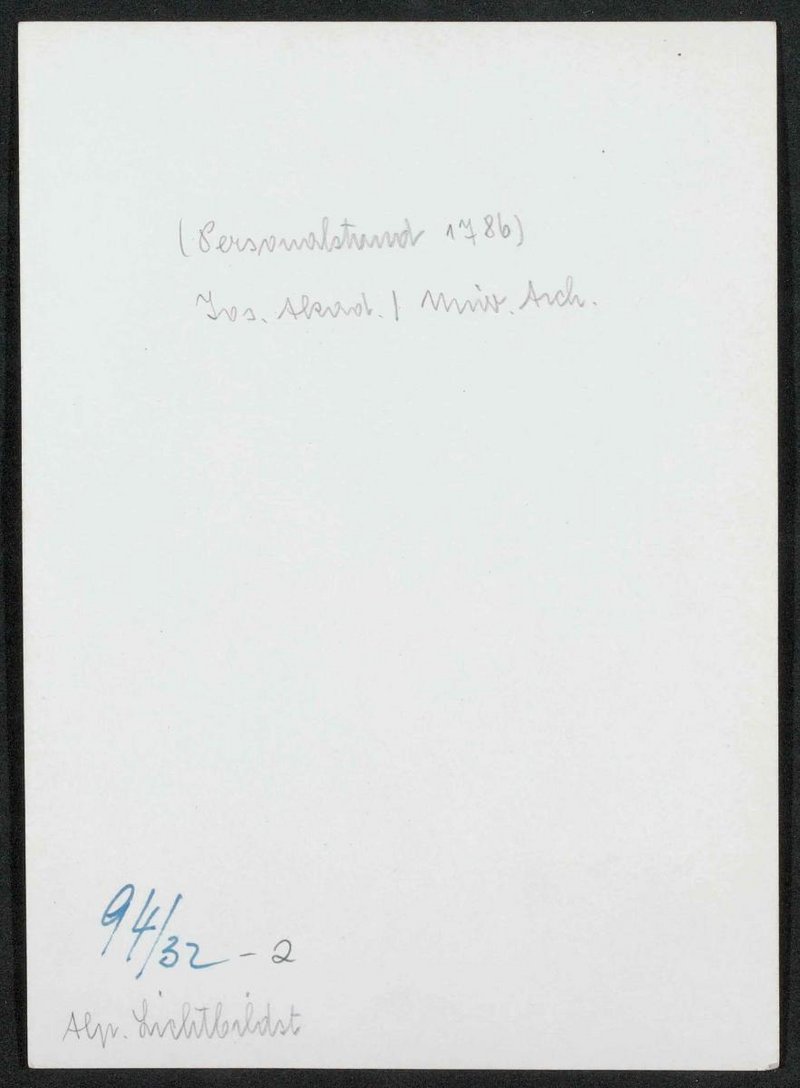 (Personalstand 1786)
Jos. Akad. / Univ. Arch.
94/32 - 2
Alp. Lichtbildst